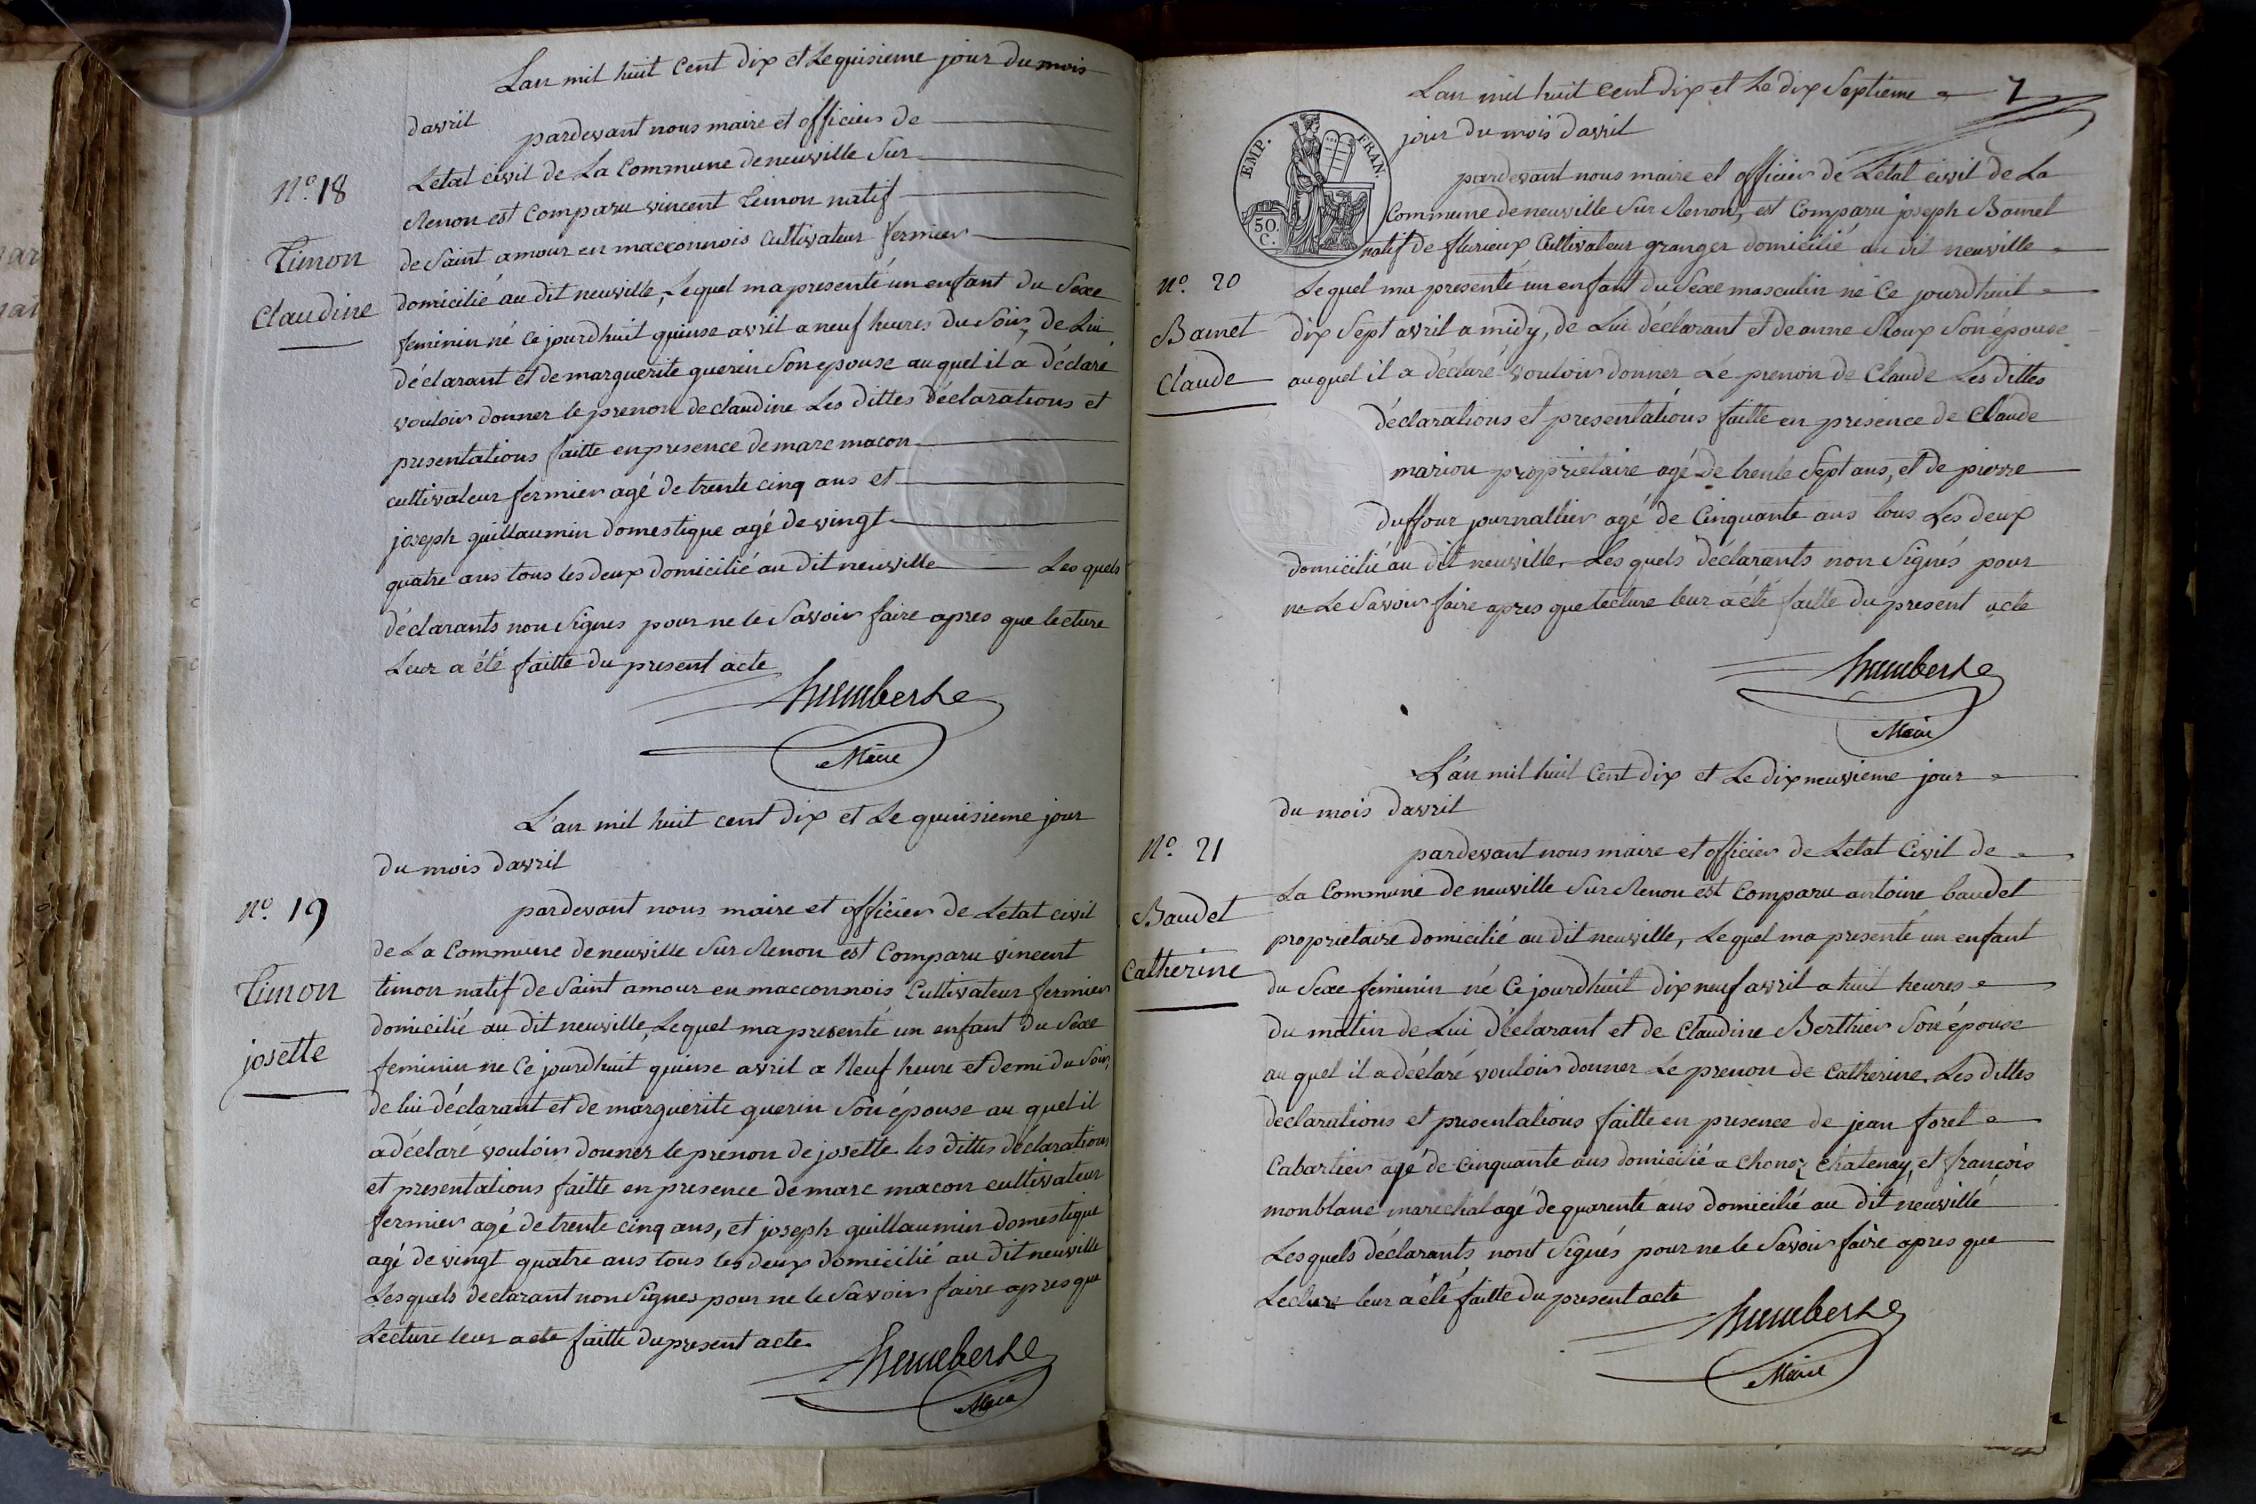 Lan mil huit Cent dix et Le quisieme jour du mois
davril pardevant nous maire et officier de
Letat civil de La Commune de neuville Sur
Renon est Comparu vincent timon natif
de Saint amour en macconnois Cultivateur fermier
N.o 18
Timon
Claudine
domicilié au dit neuville, Lequel ma presenté un enfant du Sexe
feminin né ce jourdhuit quinse avril a neuf heures du Soir, de Lui
déclarant et de marguerite querin Son epouse au quel il a déclaré
vouloir donner le prenon de claudine Les dittes déclarations et
presentations faitte en presence de marc macon
cultivateur fermier agé de trente cinq ans et
joseph guillaumin domestique agé de vingt
quatre ans tous les deux domicilié au dit neuville Les quels
déclarants non Signés pour ne le Savoir faire apres que lecture
Leur a été faitte du present acte
humberte
Maire
L'an mil huit cent dix et Le quinsieme jour
du mois davril
N.o 19
Timon
josette
pardevant nous maire et officier de Letat civil
de La Commune de neuville Sur Renon est Comparu vincent
timon natif de Saint amour en macconnois Cultivateur fermier
domicilié au dit neuville, Lequel ma presenté un enfant du Sexe
feminin ne Ce jourdhuit quinse avril a Neuf heure et demi du Soir,
de lui déclarant et de marguerite querin Son épouse au quel il
a déclaré vouloir donner le prenon de josette les dittes déclarations
et presentations faitte en presence de marc macon cultivateur
fermier agé de trente cinq ans, et joseph guillaumin domestique
agé de vingt quatre ans tous les deux domicilié au dit neuville
Lesquels declarant non Signes pour ne le Savoir faire apres que
Lecture leur a ete faitte du present acte
humberte
Maire
Lan mil huit Cent dix et Le dix Septieme 7
jour du mois davril
EMP. FRAN.
50. C.
pardevant nous maire et officier de Létat civil de La
Commune de neuville Sur Renon, est Comparu joseph Bamet
natif de flurieux Cultivateur granger domicilié au dit neuville
N.o 20
Bamet
Claude
Lequel ma presenté un enfant du Sexe masculin né Ce jourdhuit
dix Sept avril a midy, de Lui déclarant et de anne Roux Son épouse
auquel il a déclaré vouloir donner Le prenon de Claude Les dittes
déclarations et presentations faitte en presence de Claude
marion proprietaire agé de trente Sept ans, et de pierre
duffour journallier agé de Cinquante ans tous Les deux
domicilié au dit neuville, Les quels déclarants non Signés pour
ne Le Savoir faire apres que lecture leur a été faitte du present acte
humberte
Maire
L'an mil huit Cent dix et Le dix neuvieme jour
du mois davril
N.o 21
Baudet
Catherine
pardevant nous maire et officier de Letat Civil de
La Commune de neuville Sur Renon est Comparu antoine baudet
proprietaire domicilié au dit neuville, Lequel ma presenté un enfant
du Sexe feminin né Ce jourdhuit dix neuf avril a huit heures
du matin de Lui déclarant et de Claudine Berthier Son épouse
au quel il a déclaré vouloir donner Le prenon de Catherine. Les dittes
declarations et presentations faitte en presence de jean foret
Cabartier agé de Cinquante ans domicilié a Chatenay, et francois
monblanc marechal agé de quarente ans domicilié au dit neuville
Lesquels déclarants, nont Signés pour ne le Savoir faire apres que
Lecture leur a été faitte du present acte
humberte
Maire